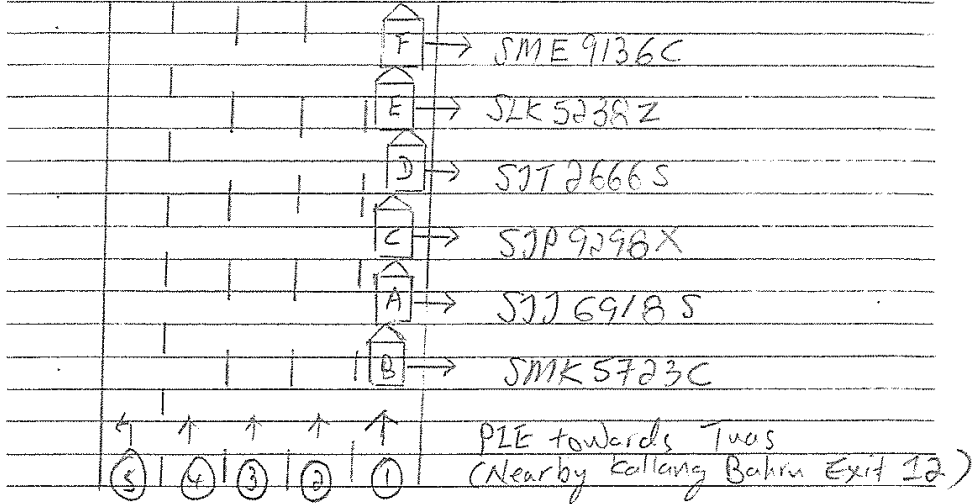 F → SME 9136C
E → SLK 5238Z
D → SJT 2666S
C → SJP 9298X
A → SJJ 6918S
B → SMK 5723C
PIE towards Tuas
5 4 3 2 1 (Nearby Kallang Bahru Exit 12)